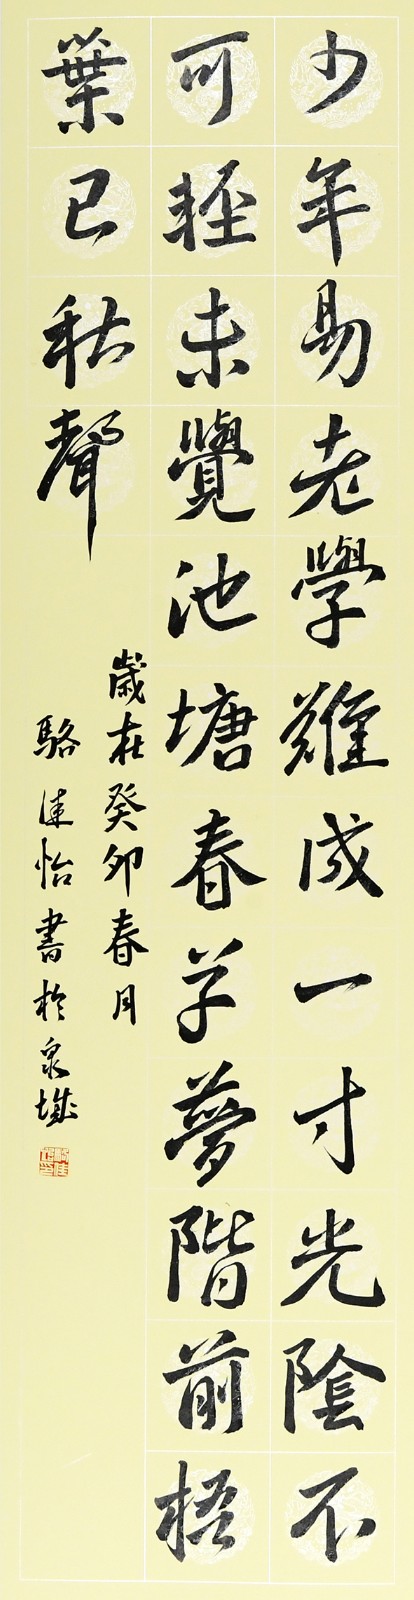 少年易老學難成一寸光陰不
可輕未覺池塘春草夢階前梧
葉已秋聲
歲在癸卯春月
駱佳怡書於泉城